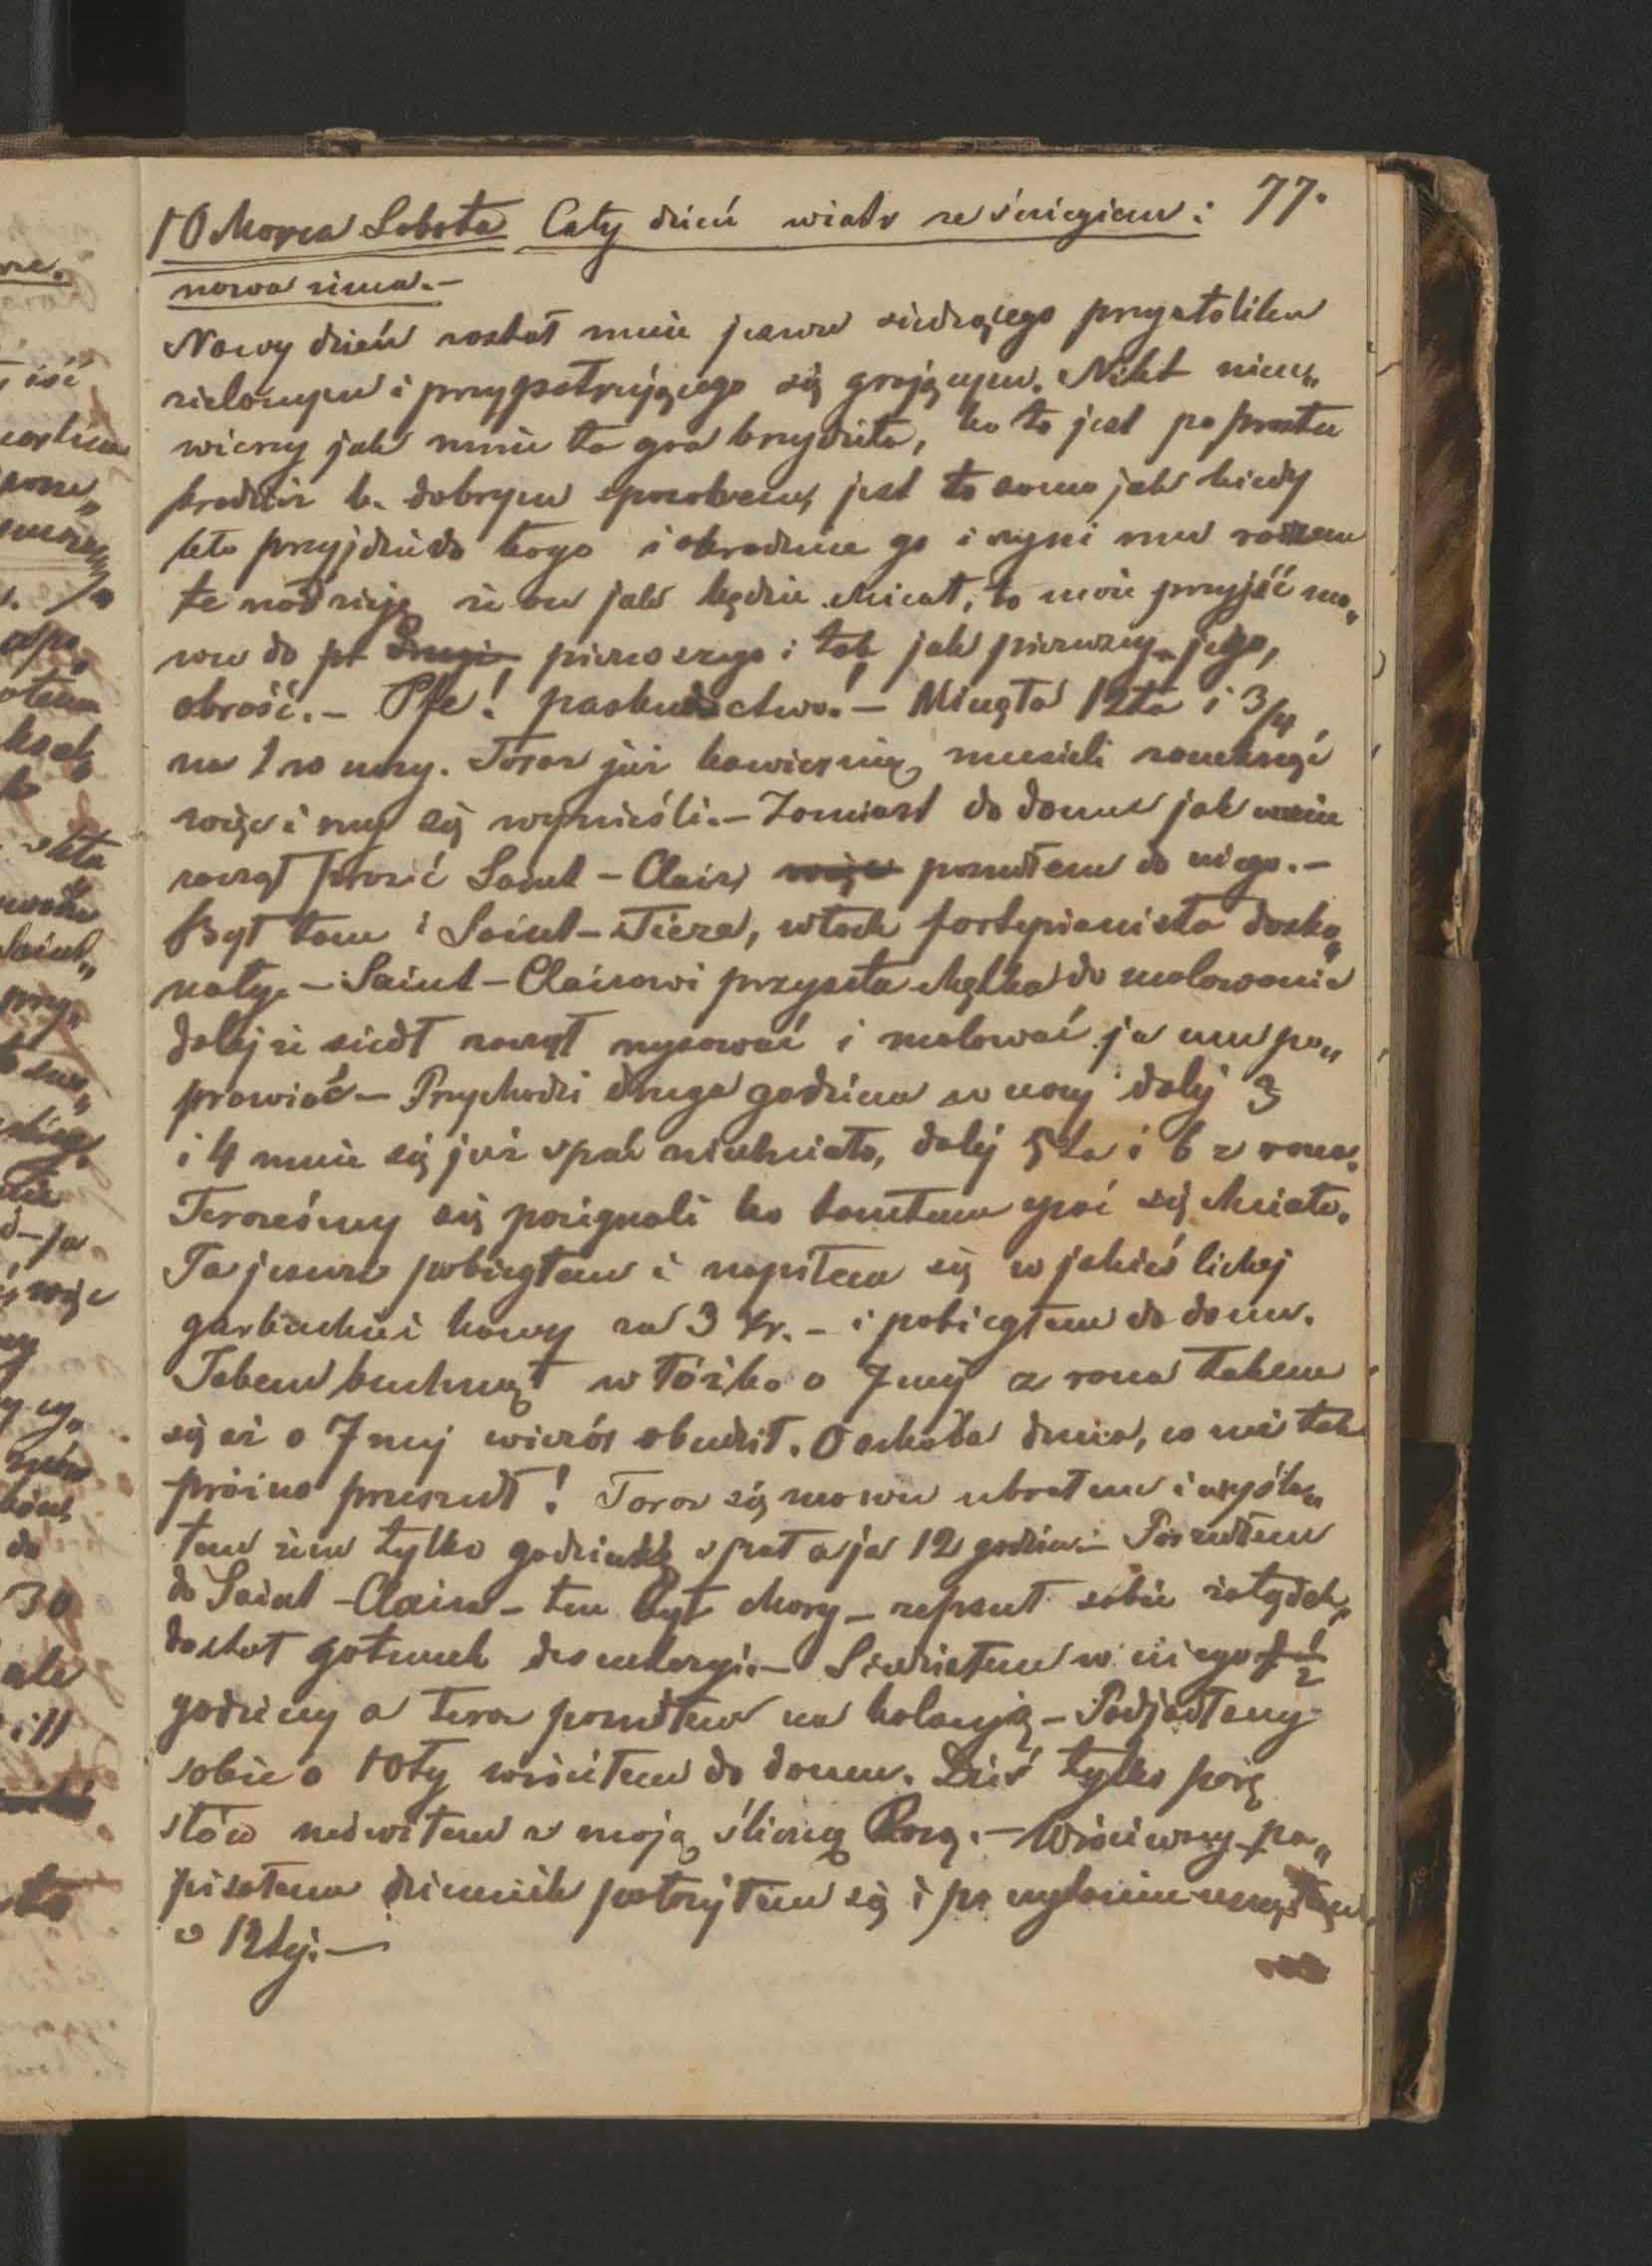 77.
10 Marca Sobota Cały dzień wiatr ze śniegiem:
nowa zima.-
Nowy dzień zastał mnie jeszcze siedzącego przystoliku
zielonym i przypatrującego się grającym. Nikt nieu„
wierzy jak mnie ta gra brzydzi, bo to jest po prostu
kradzież b. dobrym sposobem, jest to samo jak kiedy
kto przyjdzie do kogo i okradnie go i czyni mu razem
te nadzieję że on jak będzie chciał, to może przyjść zno„
wu do pierwszego i tak jak pierwszy jego,
obraść.- Pfe! paskudctwo.- Minęła 12ta i 3/4
na 1 w nocy. Teraz już kawiernię musieli zamknąć
więc i my się wynieśli.- Zamiast do domu jak mnie
zaczął prosić Saint-Clair, więc poszedłem do niego.-
Był tam i Saint- włoch fortepianista dosko„
nały.- Saint-Clairowi przyszła chętka do malowania
dalej że siedł zaczął rysować i malować ja mu po„
prawiać- Przychodzi druga godzina w nocy dalej 3
i 4 mnie się już spać niechciało, dalej 5ta i 6 z rana.
Teraześmy się pożegnali bo tamtem spać się chciało.
Ja jeszcze pobiegłem i napiłem się w jakieś lichej
garkuchni kawy za 3 kr.- i pobiegłem do domu.
Jakem buchnął w łóżko o 7mej z rana takem
się aż o 7mej wieczór obudził. O szkoda dnia, co mi tak
próżno przeszedł! Teraz się znowu ubrałem i
tem żem tylko godzinkę spał a ja 12 godzin.- Poszedłem
do Saint-Claira- ten był chory- zepsuł sobie żołądek,
dostał gatunek Siedziałem w niego 1 1/2
godziny a teraz poszedłem na kolację- Podjadłszy
sobie o 10ty wróciłem do domu. Dziś tylko parę
słów mówiłem z moją śliczną Rozą.- Wróciwszy po„
pisałem dziennik położyłem się i po myśleniu usnąłem
o 12tej.-